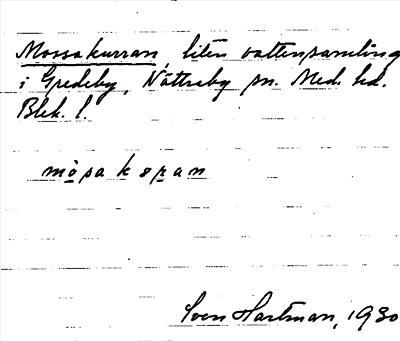 Mossakurran, liten vattensamling
i Gredeby, Nättraby sn. Med. hd.
Blek. l.
mòsakoran
Sven Hartman, 1930